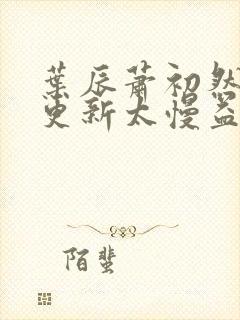 葉辰蕭初然
更新太慢益
陌蜚